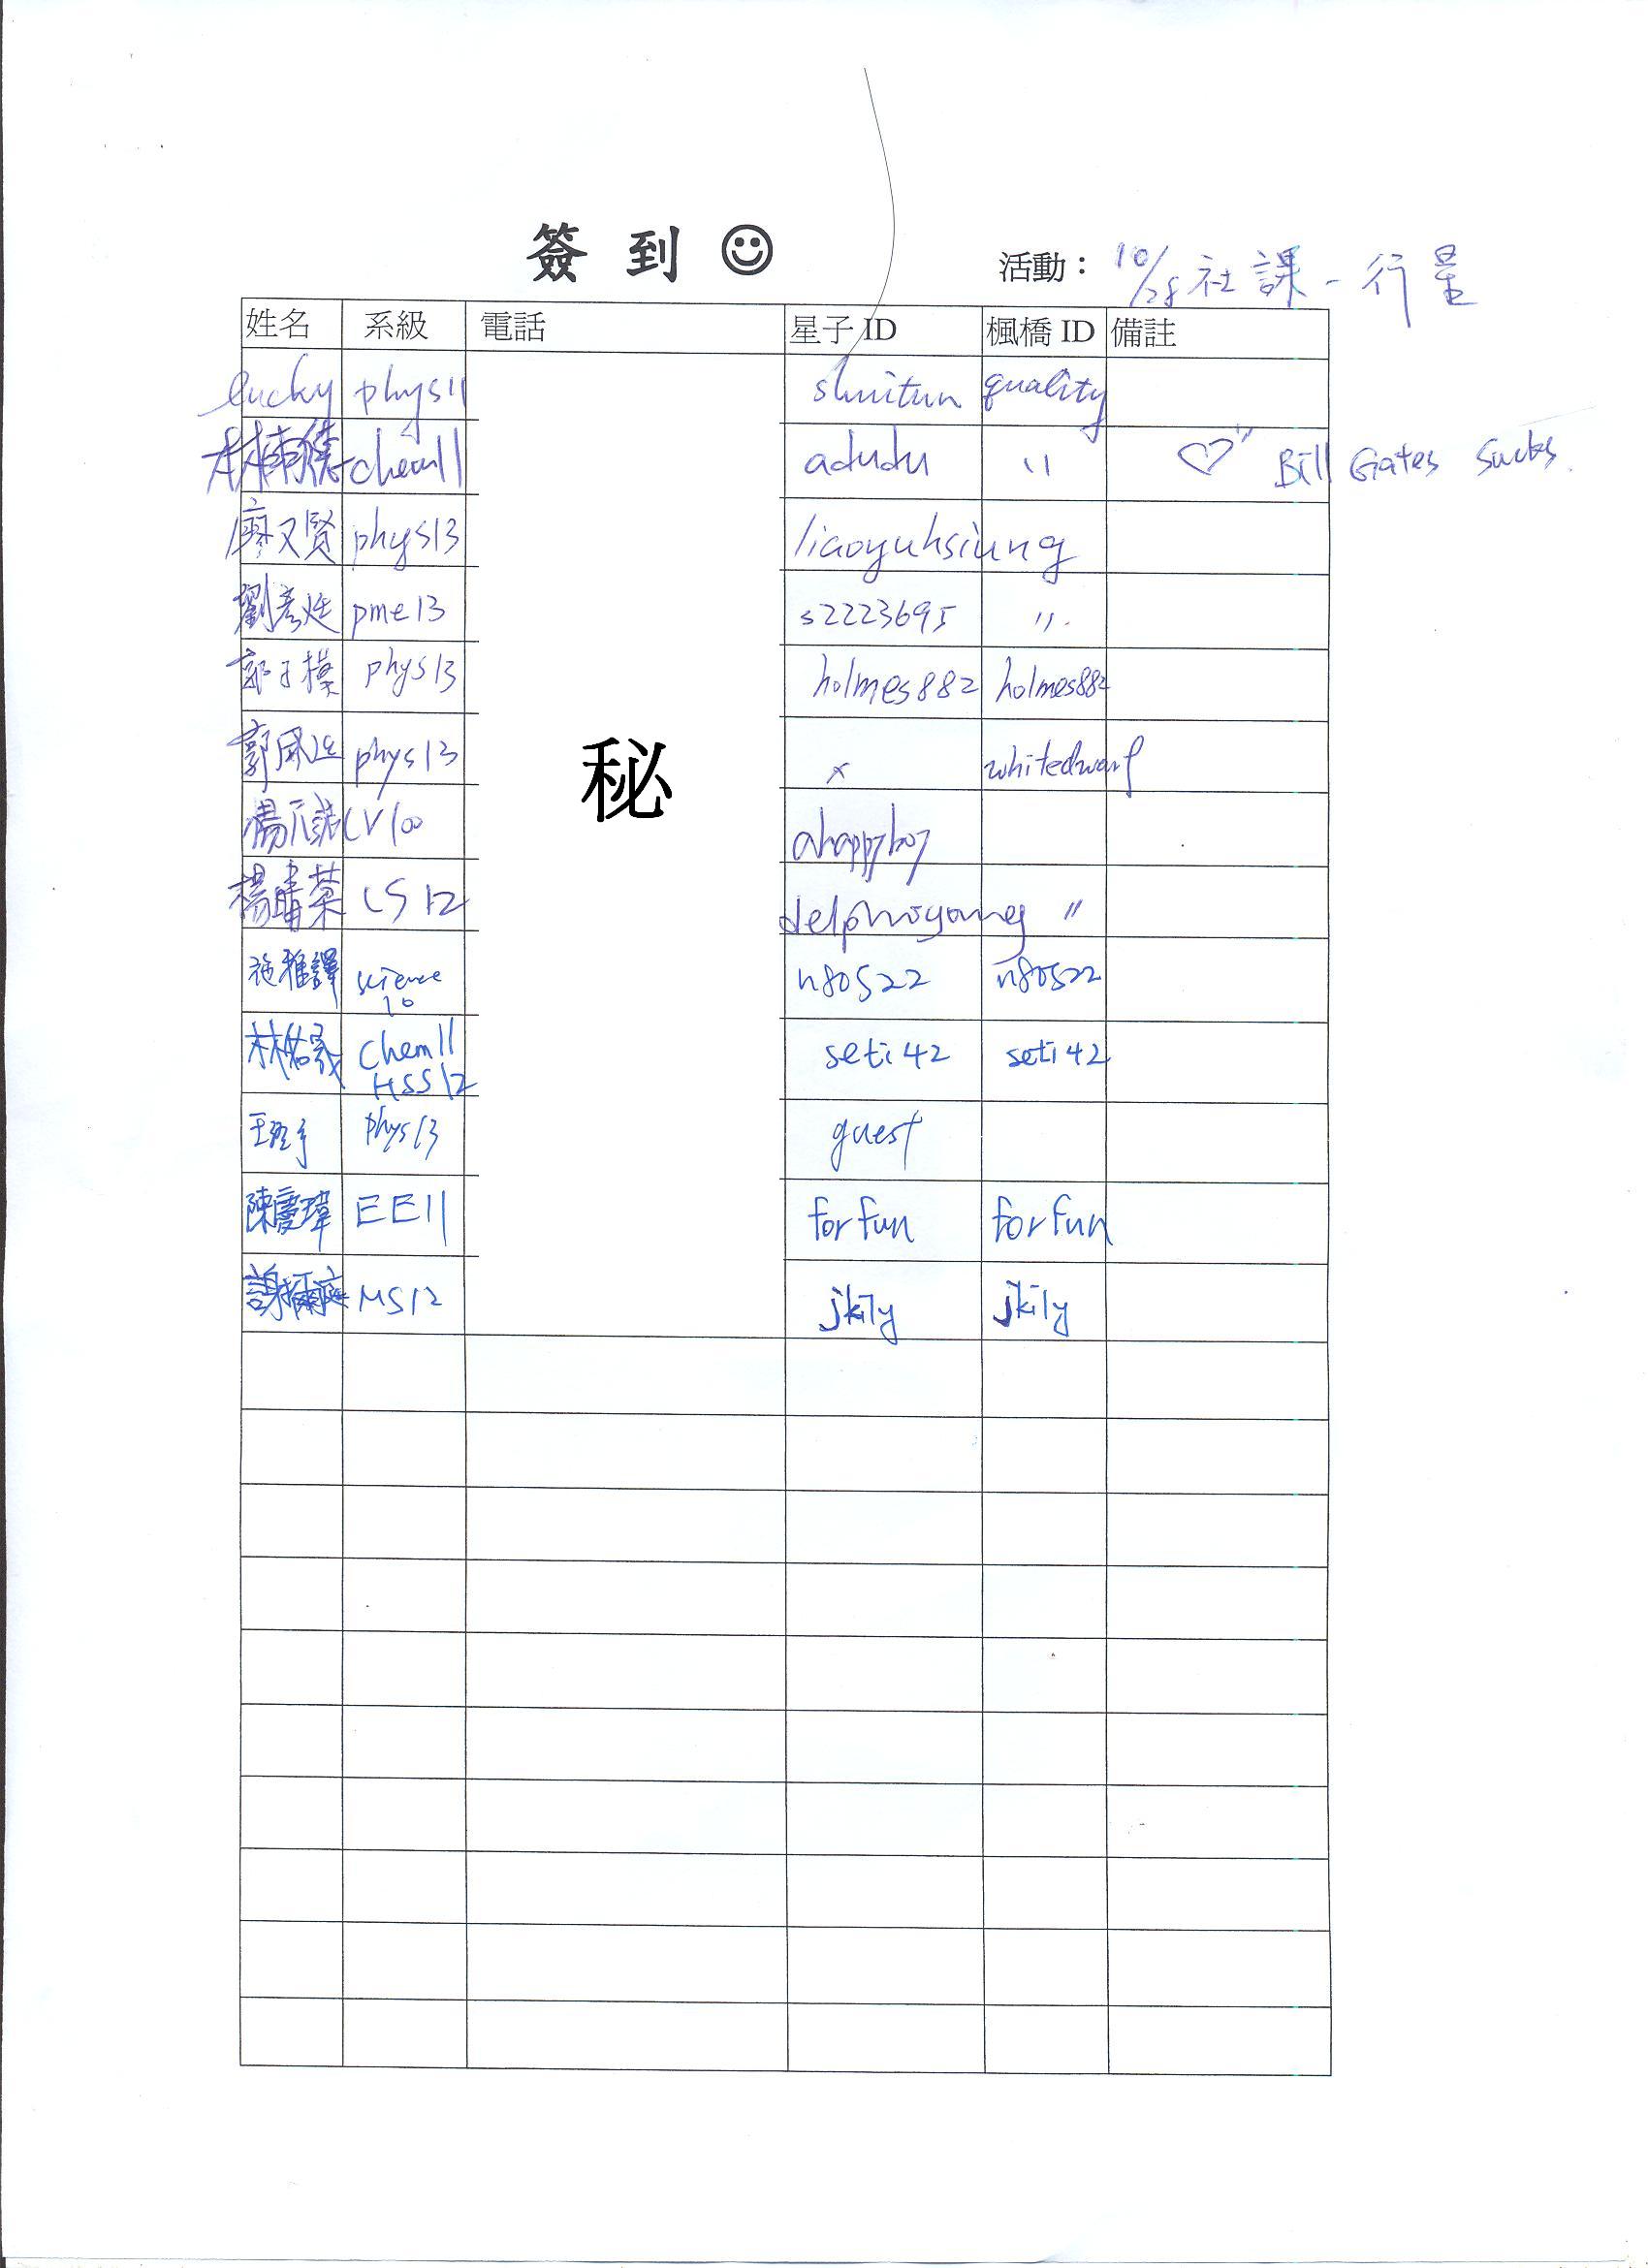 簽 到 ☺
活動： 10/28 社課 - 行星
姓名 系級 電話 星子 ID 楓橋 ID 備註
lucky phys11 shuitun quality
chem11 adudu " ♡" Bill Gates Sucks.
廖又賢 phys13 liaoyuhsiung
劉彥廷 pme13 s2223695 "
郭子模 phys13 holmes882 holmes882
郭 phys13 x whitedwarf
秘
楊 ahappyboy
楊晴葉 LS12 delphioyoung "
施雅譯 science 10 n80522 n80522
林佑晟 Chem11 seti42 seti42
HSS12
王 phys13 guest
陳慶瑋 EE11 forfun forfun
謝 MS12 jkily jkily